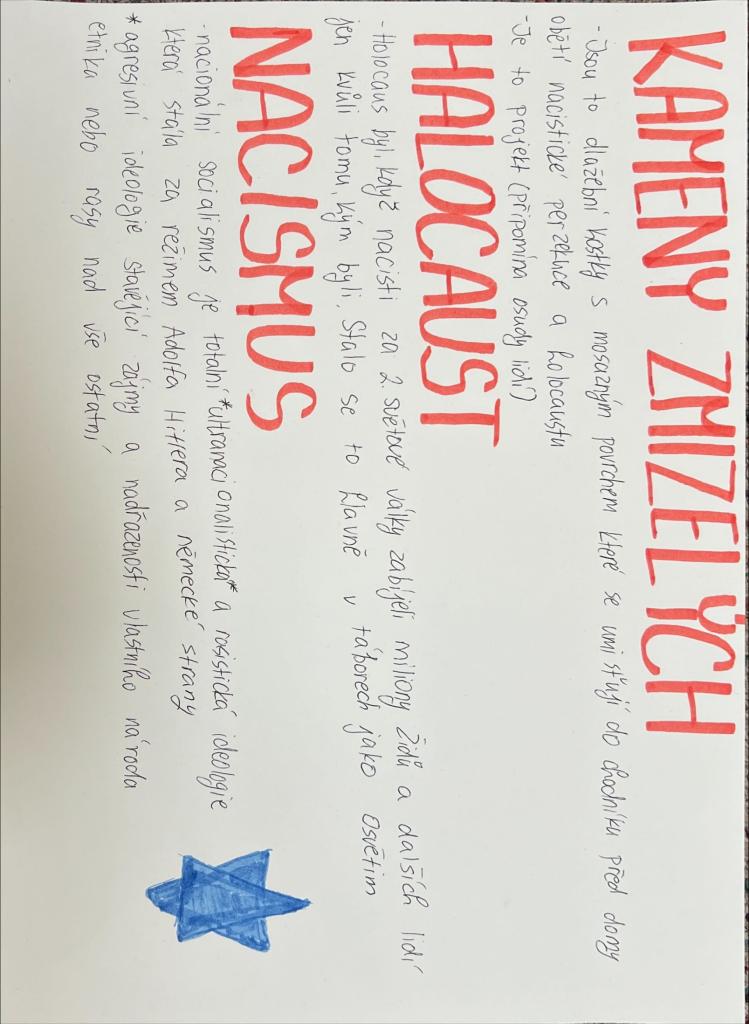 KAMENY ZMIZELÝCH
- Jsou to dlažební kostky s mosazným povrchem které se umisťují do chodníku před domy
obětí nacistické perzekuce a holocaustu
- Je to projekt (připomíná osudy lidí)
HALOCAUST
- Holocaus byl, když nacisti za 2. světové války zabíjeli miliony Židů a dalších lidí
jen kvůli tomu, kým byli. Stalo se to hlavně v táborech jako Osvětim
NACISMUS
- nacionální socialismus je totalní *ultranacionalistická* a rasistická ideologie
která stála za režimem Adolfa Hitlera a německé strany
* agresivní ideologie stavějící zájmy a nadřazenosti vlastního národa
etnika nebo rasy nad vše ostatní